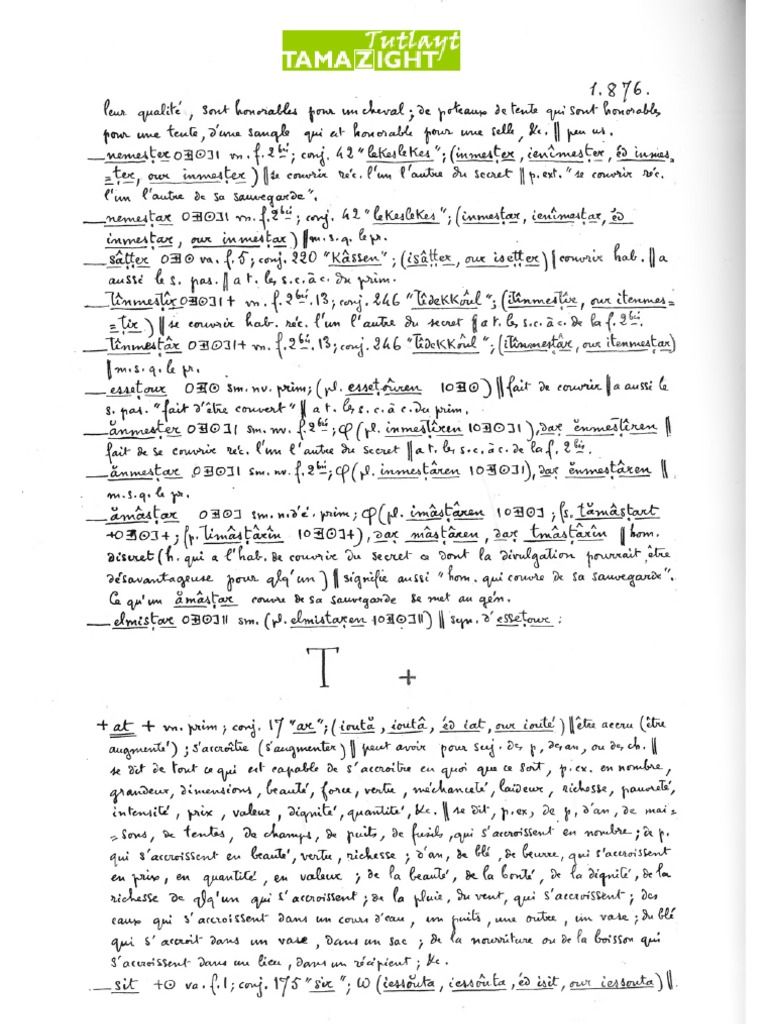 Tutlayt
TAMAZIGHT
1.876.
leur qualité, sont honorables pour un cheval ; de poteaux de tente qui sont honorables
pour une tente, d'une sangle qui est honorable pour une selle, &c. || peu us.
_ nemesṭer ⵔⴹⵙⵏ vn. f. 2bis ; conj. 42 "lekeslekes" ; (inmesṭer, ienîmesṭer, éd inmes=
=ṭer, our inmesṭer) || se couvrir réc. l'un l'autre du secret || p. ext. "se couvrir réc.
l'un l'autre de sa sauvegarde".
_ nemesṭar vn. f. 2bis ; conj. 42 "lekeslekes" ; (inmesṭar, ienîmesṭar, éd
inmesṭar, our inmesṭar) || m. s. q. le pr.
_ sâṭṭer va. f. 5 ; conj. 220 "kâssen" ; (isâṭṭer, our iseṭṭer) | couvrir hab. || a
aussi le s. pas. || a t. les s. c. à c. du prim.
_ tînmesṭîr vn. f. 2bis. 13 ; conj. 246 "tîdekkoûl" ; (itînmesṭîr, our itenmes=
=ṭir) || se couvrir hab. réc. l'un l'autre du secret || a t. les s. c. à c. de la f. 2bis.
_ tînmesṭâr vn. f. 2bis. 13 ; conj. 246 "tîdekkoûl" ; (itînmesṭâr, our itenmesṭar)
|| m. s. q. le pr.
_ esseṭour sm. nv. prim ; (pl. esseṭoûren) || fait de couvrir || a aussi le
s. pas. "fait d'être couvert" || a t. les s. c. à c. du prim.
_ ănmesṭer sm. nv. f. 2bis ; φ (pl. inmesṭîren), dar ĕnmesṭîren ||
fait de se couvrir réc. l'un l'autre du secret || a t. les s. c. à c. de la f. 2bis.
_ ănmesṭar sm. nv. f. 2bis ; φ (pl. inmesṭâren), dar ĕnmesṭâren ||
m. s. q. le pr.
_ ămâsṭar sm. n. d'é. prim ; φ (pl. imâsṭâren ; fs. tămâsṭart
; fp. timâsṭârîn), dar mâsṭâren, dar tmâsṭârîn || hom.
discret (h. qui a l'hab. de couvrir du secret ce dont la divulgation pourrait être
désavantageuse pour qlq'un) || signifie aussi "hom. qui couvre de sa sauvegarde".
Ce qu'un ămâsṭar couvre de sa sauvegarde se met au gén.
_ elmisṭar sm. (pl. elmisṭaren) || syn. d'esseṭour :
T ⵜ
+ at ⵜ vn. prim ; conj. 17 "ar" ; (ioută, ioutâ, éd iat, our iouté) || être accru (être
augmenté) ; s'accroître (s'augmenter) || peut avoir pour suj. des p, des an, ou des ch. ||
se dit de tout ce qui est capable de s'accroître en quoi que ce soit, p. ex. en nombre,
grandeur, dimensions, beauté, force, vertu, méchanceté, laideur, richesse, pauvreté,
intensité, prix, valeur, dignité, quantité, &c. || se dit, p. ex, de p, d'an, de mai=
=sons, de tentes, de champs, de puits, de fusils, qui s'accroissent en nombre ; de p.
qui s'accroissent en beauté, vertu, richesse ; d'an, de blé, de beurre, qui s'accroissent
en prix, en quantité, en valeur ; de la beauté, de la bonté, de la dignité, de la
richesse de qlq'un qui s'accroissent ; de la pluie, du vent, qui s'accroissent ; des
eaux qui s'accroissent dans un cours d'eau, un puits, une outre, un vase ; du blé
qui s'accroit dans un vase, dans un sac ; de la nourriture ou de la boisson qui
s'accroissent dans un lieu, dans un récipient ; &c.
_ sit ⵜⵙ va. f. 1 ; conj. 175 "six" ; ω (iessŏuta, iessôuta, éd isit, our iessouta) ||.